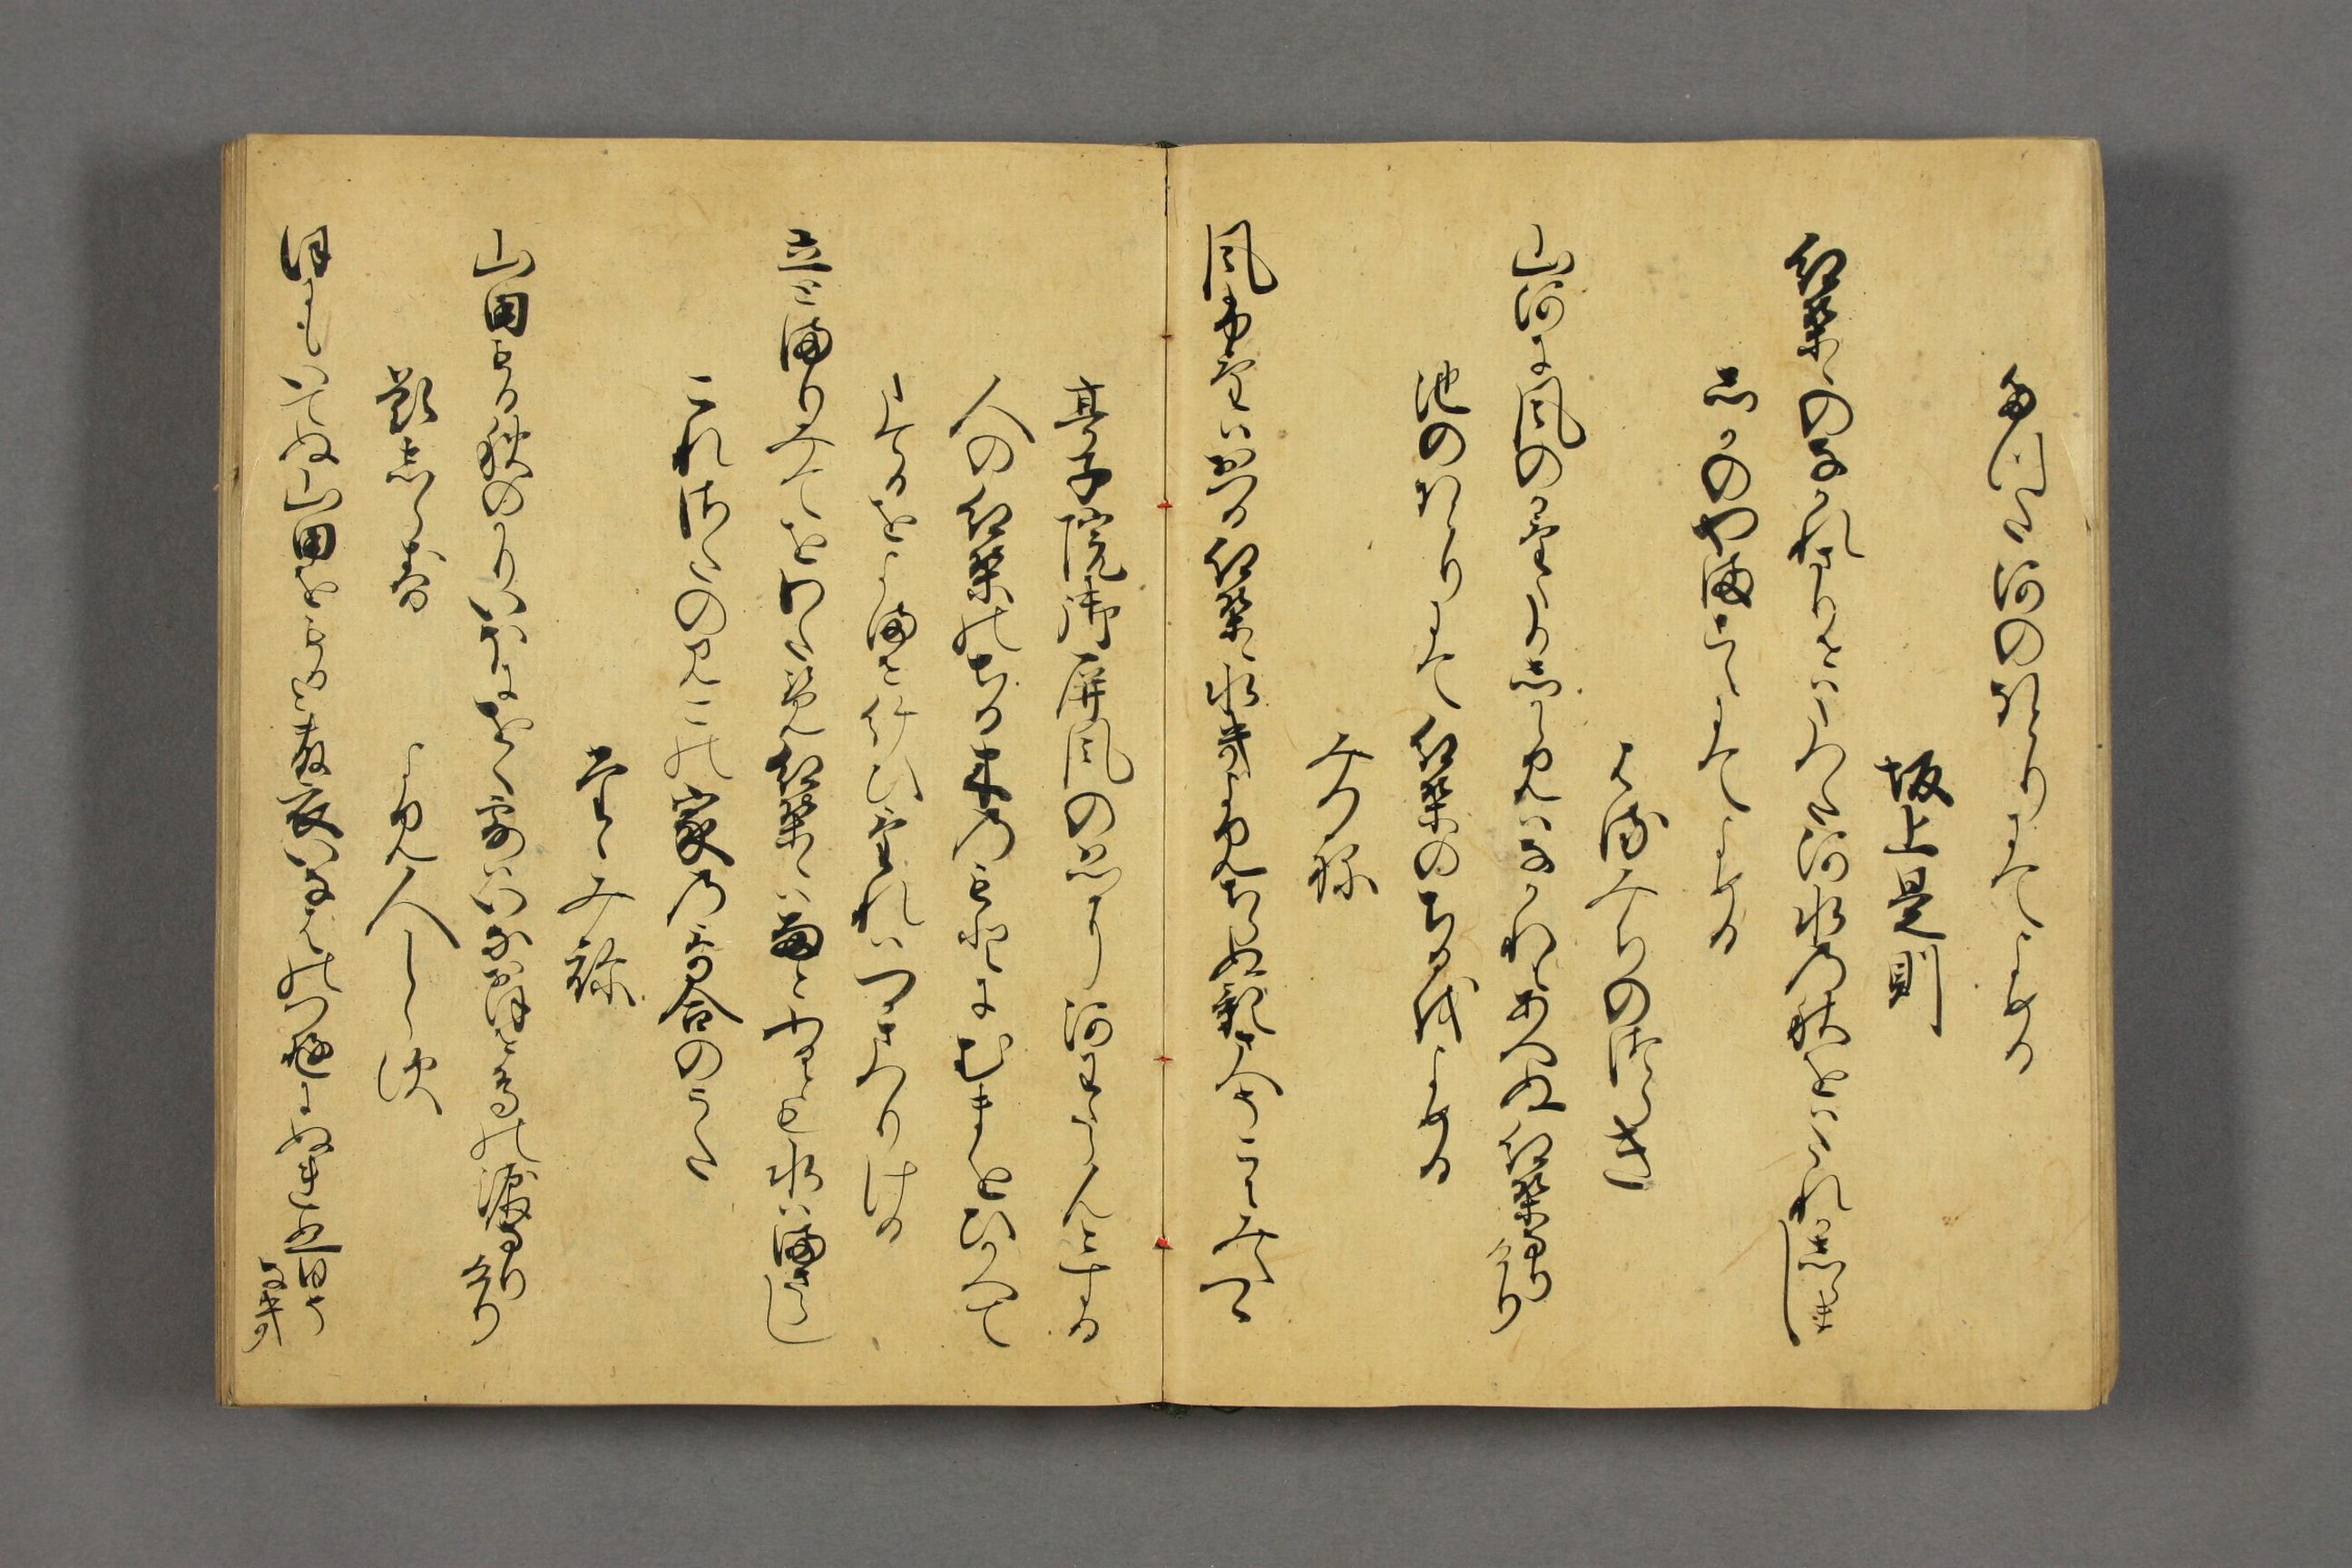 たつた河のほとりにてよめる
坂上是則
紅葉〻のなかれさりせはたつた河水の秌をはたれかしらまし
しかの山こえにてよめる
はるみちのつらき
山河に風のかけたるしからみはなかれもあへぬ紅葉なりけり
池のほとりにて紅葉のちるをよめる
みつね
風ふけはおつる紅葉〻水きよみちらぬ影さへそこにみえつゝ
亭子院御屏風のゑに河わたらんとする
人の紅葉のちる木のもとにむまをひかへて
たてるをよませ給ひけれはつかうまつりける
立とまりみてをわたらん紅葉〻は雨とふるとも水はまさらし
これさたのみこの家の哥合のうた
たゝみね
山田もる秋のかりいほにをく露はいなおほせ鳥の涙なりけり
題しらす
よみ人しらす
ほにもいてぬ山田をもると藤衣いなはの露にぬれぬ日そなき